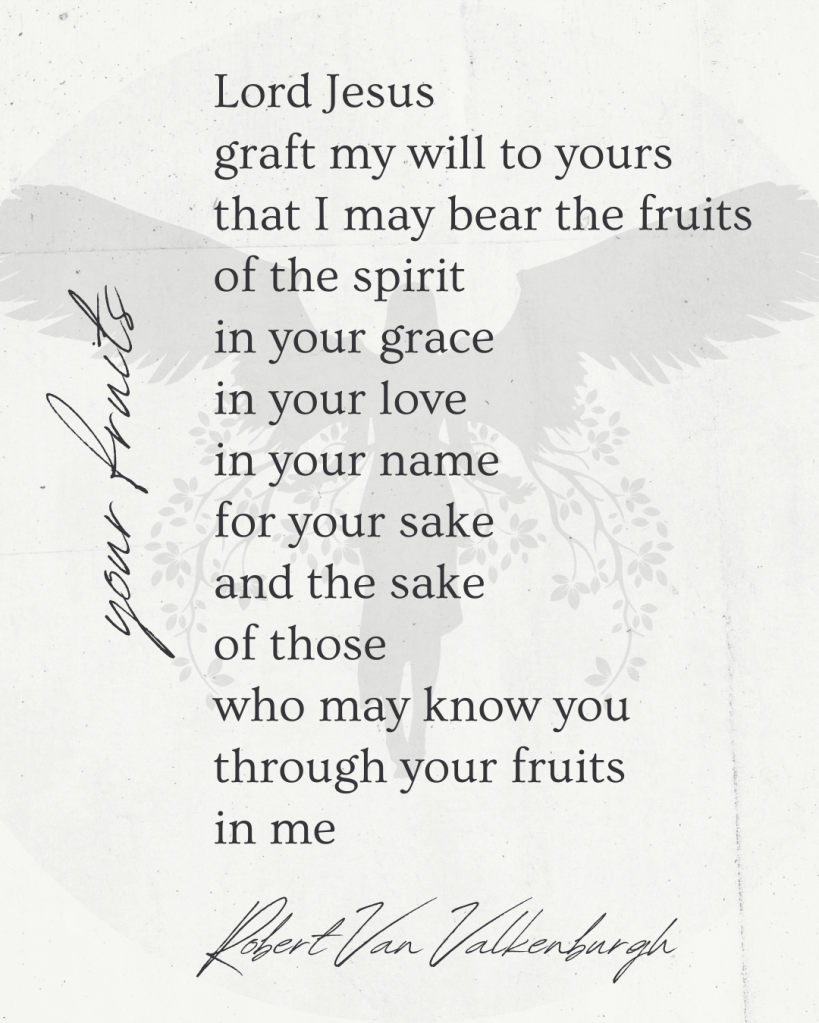 your fruits
Lord Jesus
graft my will to yours
that I may bear the fruits
of the spirit
in your grace
in your love
in your name
for your sake
and the sake
of those
who may know you
through your fruits
in me
Robert Van Valkenburgh